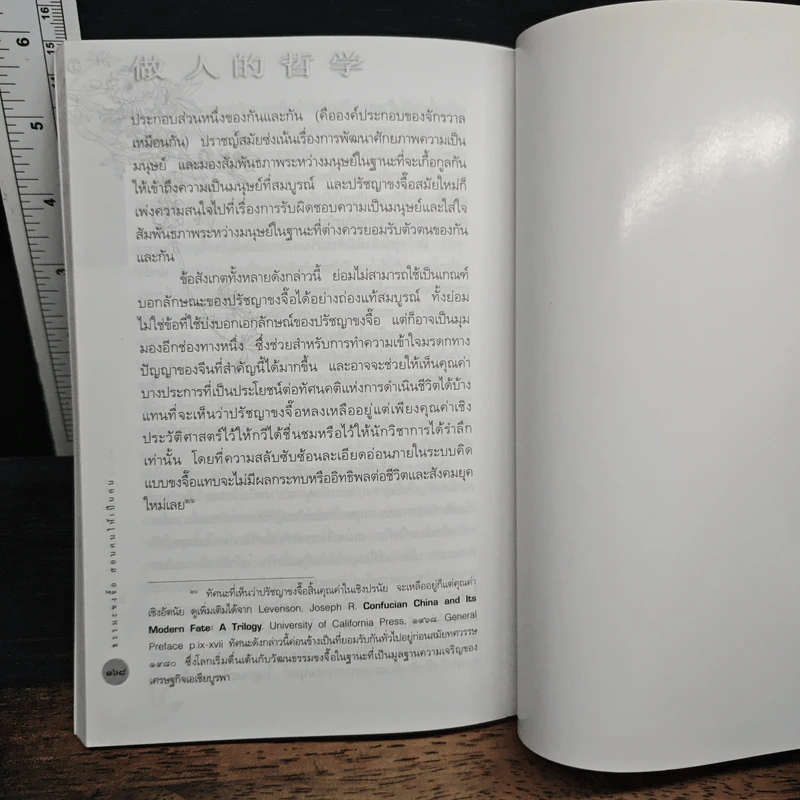 做人的哲学
ประกอบส่วนหนึ่งของกันและกัน (คือองค์ประกอบของจักรวาล
เหมือนกัน) ปราชญ์สมัยซ่งเน้นเรื่องการพัฒนาศักยภาพความเป็น
มนุษย์ และมองสัมพันธภาพระหว่างมนุษย์ในฐานะที่จะเกื้อกูลกัน
ให้เข้าถึงความเป็นมนุษย์ที่สมบูรณ์ และปรัชญาขงจื๊อสมัยใหม่ก็
เพ่งความสนใจไปที่เรื่องการรับผิดชอบความเป็นมนุษย์และใส่ใจ
สัมพันธภาพระหว่างมนุษย์ในฐานะที่ต่างควรยอมรับตัวตนของกัน
และกัน
ข้อสังเกตทั้งหลายดังกล่าวนี้ ย่อมไม่สามารถใช้เป็นเกณฑ์
บอกลักษณะของปรัชญาขงจื๊อได้อย่างถ่องแท้สมบูรณ์ ทั้งย่อม
ไม่ใช่ข้อที่ใช้บ่งบอกเอกลักษณ์ของปรัชญาขงจื๊อ แต่ก็อาจเป็นมุม
มองอีกช่องทางหนึ่ง ซึ่งช่วยสำหรับการทำความเข้าใจมรดกทาง
ปัญญาของจีนที่สำคัญนี้ได้มากขึ้น และอาจจะช่วยให้เห็นคุณค่า
บางประการที่เป็นประโยชน์ต่อทัศนคติแห่งการดำเนินชีวิตได้บ้าง
แทนที่จะเห็นว่าปรัชญาขงจื๊อหลงเหลืออยู่แต่เพียงคุณค่าเชิง
ประวัติศาสตร์ไว้ให้กวีได้ชื่นชมหรือไว้ให้นักวิชาการได้รำลึก
เท่านั้น โดยที่ความสลับซับซ้อนละเอียดอ่อนภายในระบบคิด
แบบขงจื๊อแทบจะไม่มีผลกระทบหรืออิทธิพลต่อชีวิตและสังคมยุค
ใหม่เลย๒๖
๒๖ ทัศนะที่เห็นว่าปรัชญาขงจื๊อสิ้นคุณค่าในเชิงปรนัย จะเหลืออยู่ก็แต่คุณค่า
เชิงอัตนัย ดูเพิ่มเติมได้จาก Levenson, Joseph R. Confucian China and Its
Modern Fate: A Trilogy. University of California Press, ๑๙๖๘. General
Preface p.ix-xvii ทัศนะดังกล่าวนี้ค่อนข้างเป็นที่ยอมรับกันทั่วไปอยู่ก่อนสมัยทศวรรษ
๑๙๘๐ ซึ่งโลกเริ่มตื่นเต้นกับวัฒนธรรมขงจื๊อในฐานะที่เป็นมูลฐานความเจริญของ
เศรษฐกิจเอเชียบูรพา
ธรรมะขงจื๊อ สอนคนให้เป็นคน
๑๖๘
6
5
4
3
16
15